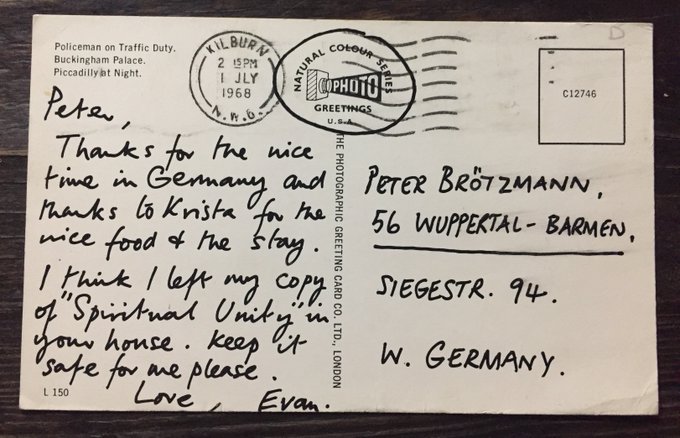 Policeman on Traffic Duty.
Buckingham Palace.
Piccadilly at Night.
KILBURN
2 15 PM
1 JLY
1968
N.W.6.
NATURAL COLOUR SERIES
PHOTO
GREETINGS
U.S.A.
C12746
D
Peter,
Thanks for the nice
time in Germany and
thanks to Krista for the
nice food & the stay.
I think I left my copy
of "Spiritual Unity" in
your house. Keep it
safe for me please.
Love, Evan.
L 150
THE PHOTOGRAPHIC GREETING CARD CO. LTD., LONDON
PETER BRÖTZMANN,
56 WUPPERTAL - BARMEN,
SIEGESTR. 94.
W. GERMANY.